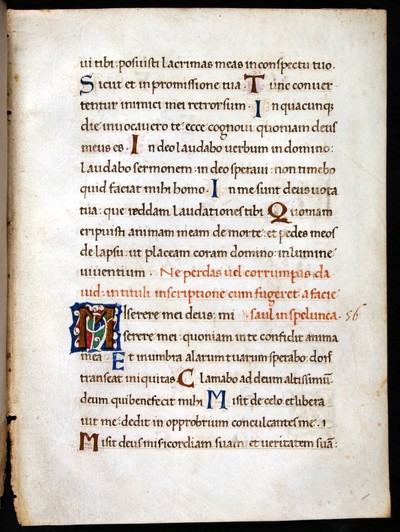 ui tibi: posuisti lacrimas meas in conspectu tuo.
Sicut et in promissione tua. Tunc conuer
tentur inimici mei retrorsum. In quacunq;
die inuocauero te: ecce cognoui quoniam deus
meus es. In deo laudabo uerbum in domino:
laudabo sermonem: in deo speraui: non timebo
quid faciat mihi homo. In me sunt deus uota
tua: que reddam laudationes tibi. Quoniam
eripuisti animam meam de morte: et pedes meos
de lapsu: ut placeam coram domino: in lumine
uiuentium. Ne perdas uel corrumpas da
uid: in tituli inscriptione cum fugeret a facie
Miserere mei deus: mi saul in spelunca. 56
serere mei: quoniam in te confidit anima
mea. Et in umbra alarum tuarum sperabo: donec
transeat iniquitas. Clamabo ad deum altissimū:
deum qui benefecit mihi. Misit de celo et libera
uit me: dedit in opprobrium conculcantes me.
Misit deus misericordiam suam: et ueritatem suā: